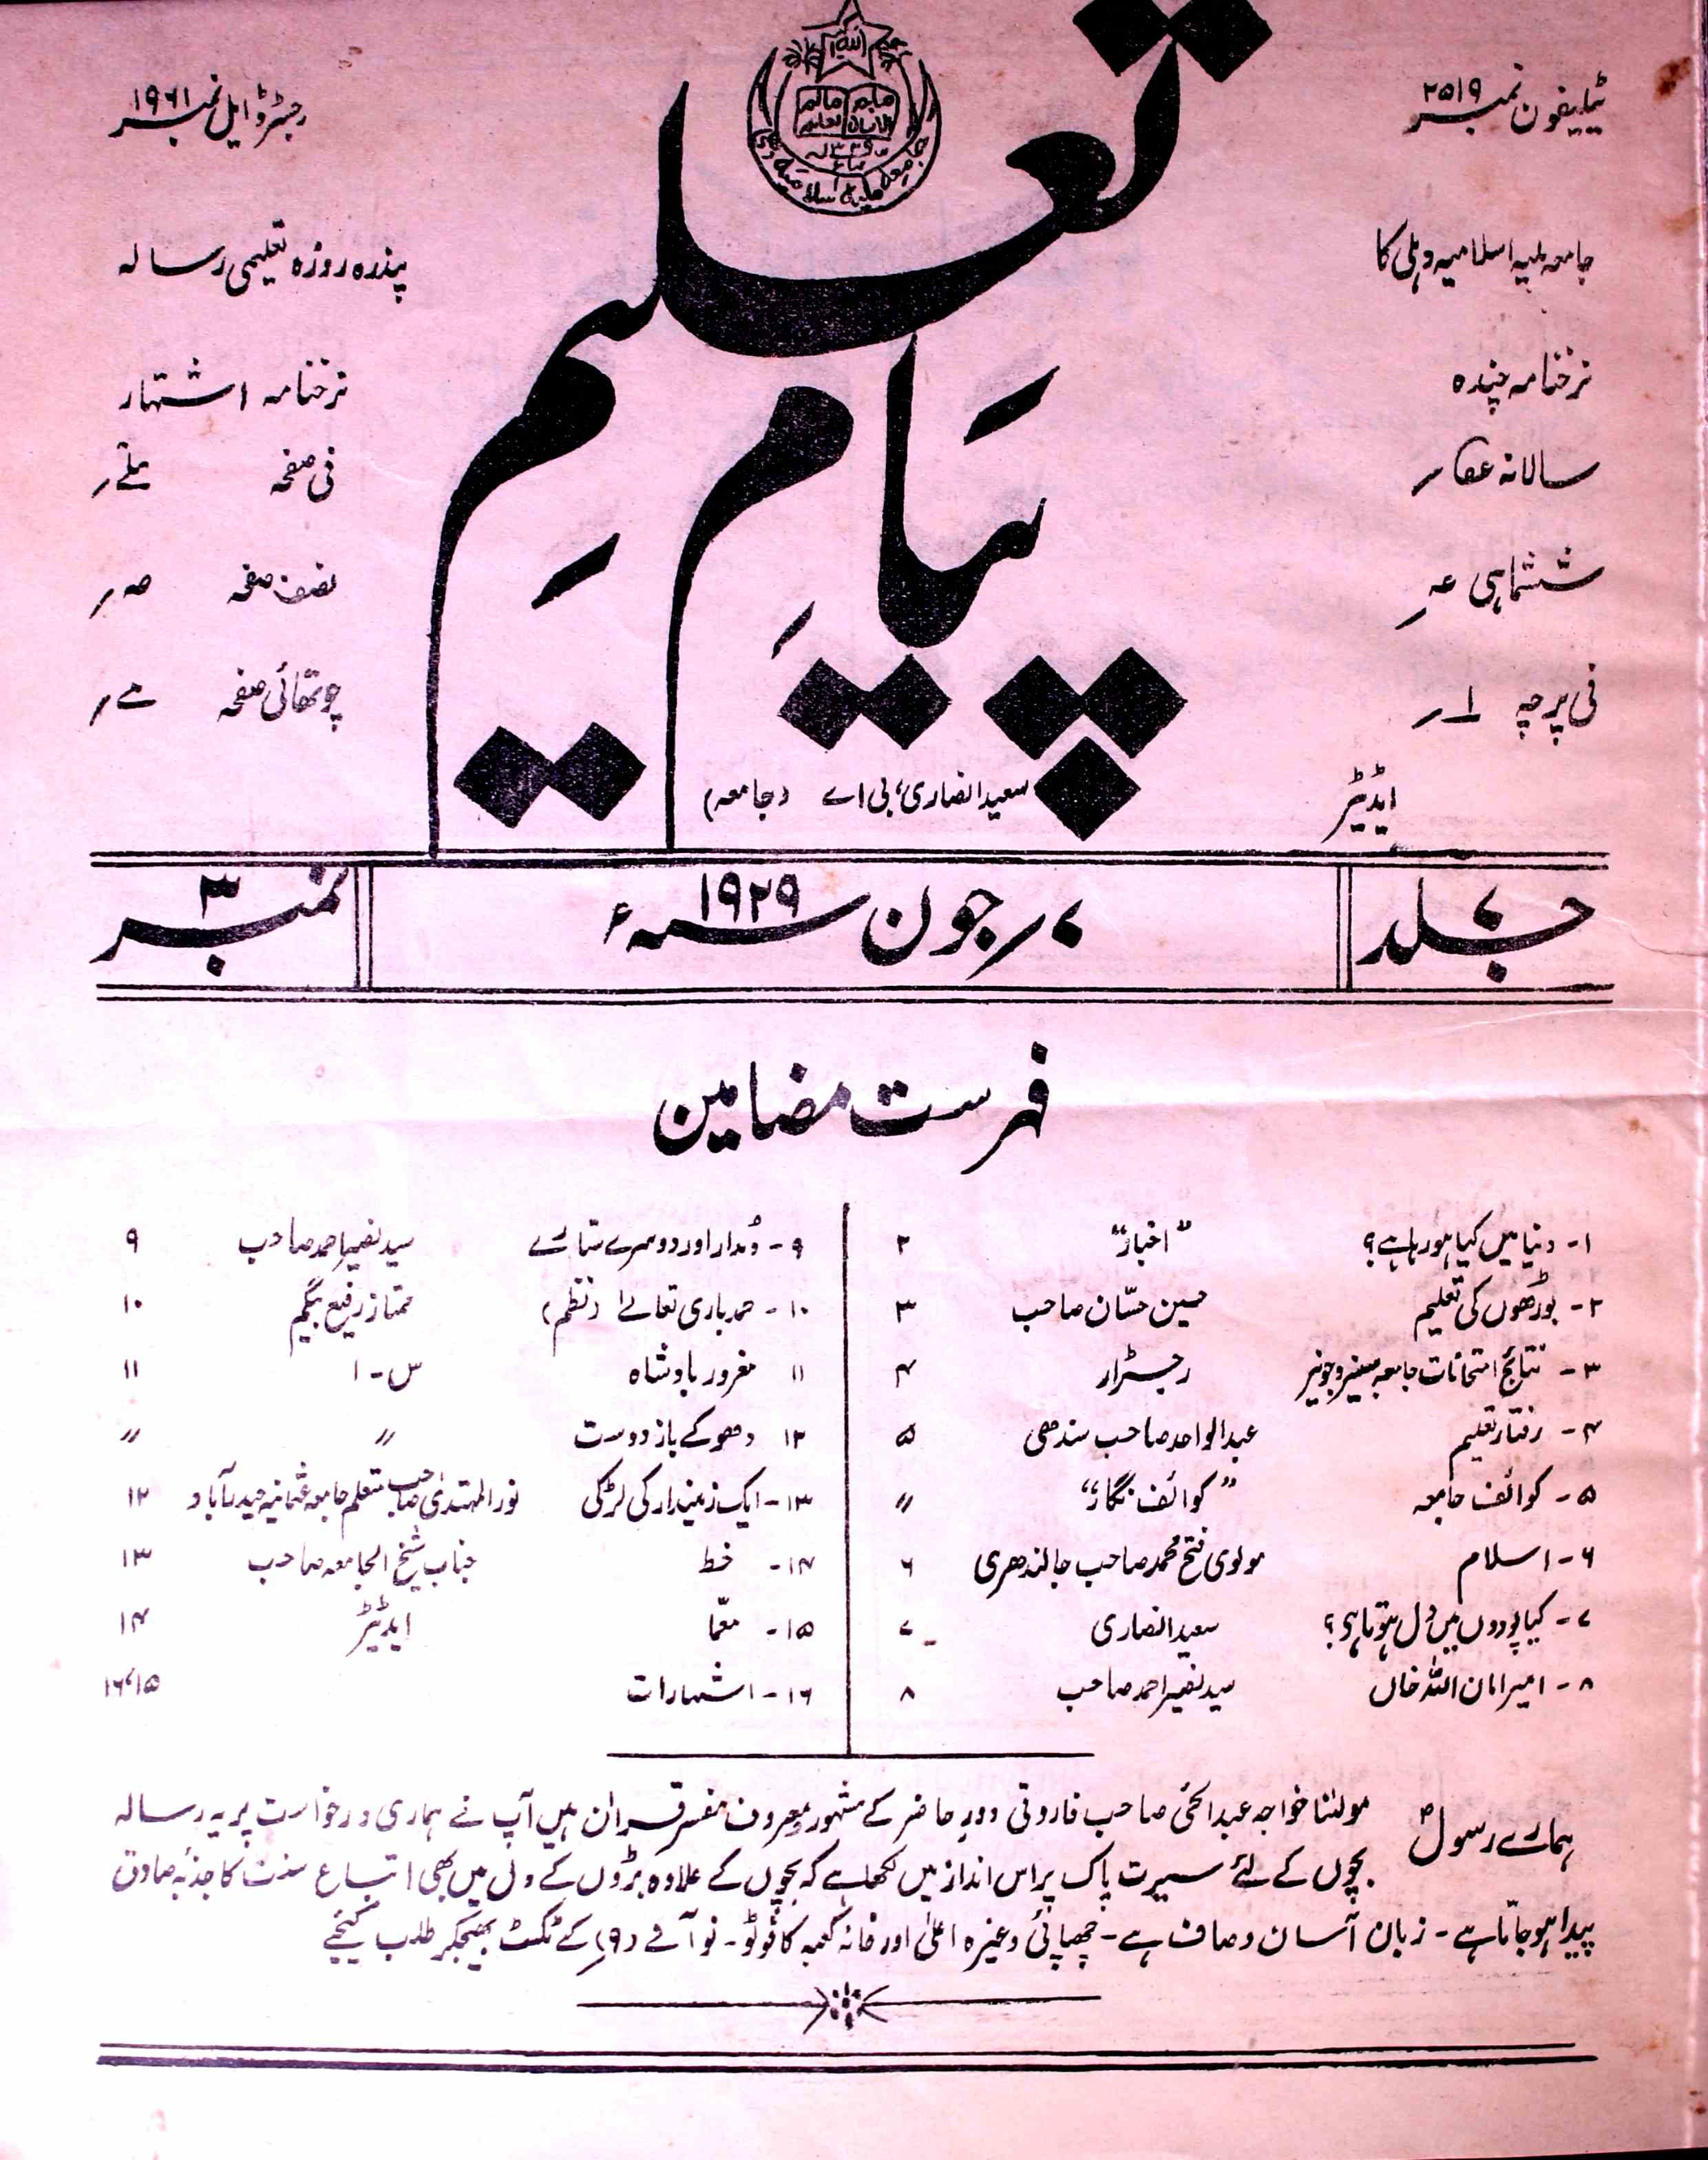 ٹیلیفون نمبر ۲۵۱۹
رجسٹرڈ ایل نمبر ۱۹۶۱
پیام تعلیم
جامعہ ملیہ اسلامیہ دہلی کا
پندرہ روزہ تعلیمی رسالہ
نرخنامہ چندہ
سالانہ
ششماہی
فی پرچہ ۱ر
نرخنامہ اشتہار
فی صفحہ
نصف صفحہ
چوتھائی صفحہ
ایڈیٹر سعید انصاری، بی اے (جامعہ)
جلد ۷
۷ر جون سنہ ۱۹۲۹ء
نمبر ۳
فہرست مضامین
۱- دنیا میں کیا ہو رہا ہے؟ "اخبار" ۲
۲- بوڑھوں کی تعلیم حسین حسّان صاحب ۳
۳- نتائج امتحانات جامعہ سینیر و جونیر رجسٹرار ۴
۴- رفتار تعلیم عبدالواحد صاحب سندھی ۵
۵- کوائف جامعہ "کوائف نگار" 〃
۶- اسلام مولوی فتح محمد صاحب جالندھری ۶
۷- کیا پودوں میں دل ہوتا ہی؟ سعید انصاری ۷
۸- امیر امان اللہ خاں سید نصیر احمد صاحب ۸
۹- دُمدار اور دوسرے ستارے سید نصیر احمد صاحب ۹
۱۰- حمد باری تعالےٰ (نظم) ممتاز رفیع بیگم ۱۰
۱۱ مغرور بادشاہ س-ا ۱۱
۱۲ دھوکے باز دوست 〃 〃
۱۳- ایک زمیندار کی لڑکی نور المہتدی صاحب متعلم جامعہ عثمانیہ حیدرآباد ۱۲
۱۴- خط جناب شیخ الجامعہ صاحب ۱۳
۱۵- معمّا ایڈیٹر ۱۴
۱۶- اشتہارات ۱۵،۱۶
ہمارے رسولؐ مولٰنا خواجہ عبدالحئی صاحب فاروقی دورِ حاضر کے مشہور و معروف مفسر قرآن ہیں آپ نے ہماری درخواست پر یہ رسالہ
بچوں کے لئے سیرت پاک پر اس انداز میں لکھا ہے کہ بچوں کے علاوہ بڑوں کے دل میں بھی اتباع سنت کا جذبہ صادق
پیدا ہو جاتا ہے - زبان آسان و صاف ہے - چھپائی وغیرہ اعلیٰ اور خانہ کعبہ کا فوٹو - نو آنے (۹ر) کے ٹکٹ بھیجکر طلب کیجئے